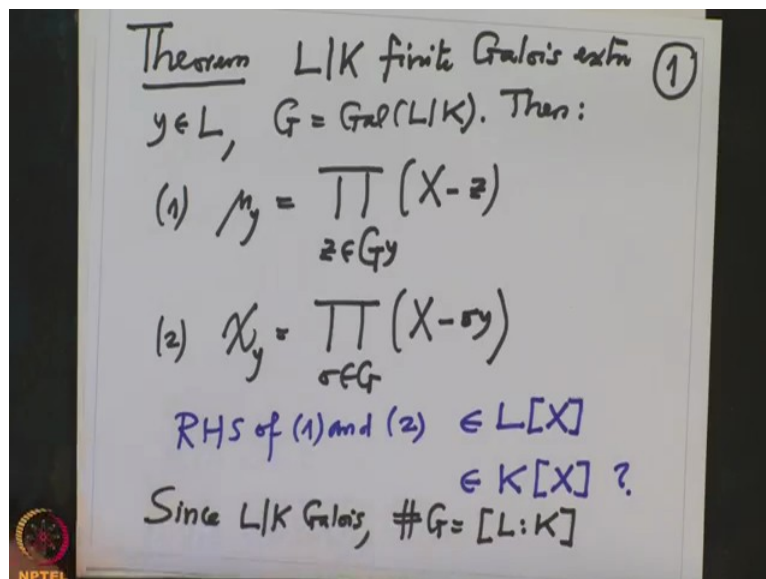 Theorem L|K finite Galois extn ①
y ∈ L, G = Gal(L|K). Then:
(1) μ_y = ∏_{z∈Gy} (X-z)
(2) χ_y = ∏_{σ∈G} (X-σy)
RHS of (1) and (2) ∈ L[X]
∈ K[X] ?
Since L|K Galois, #G = [L:K]
NPTEL